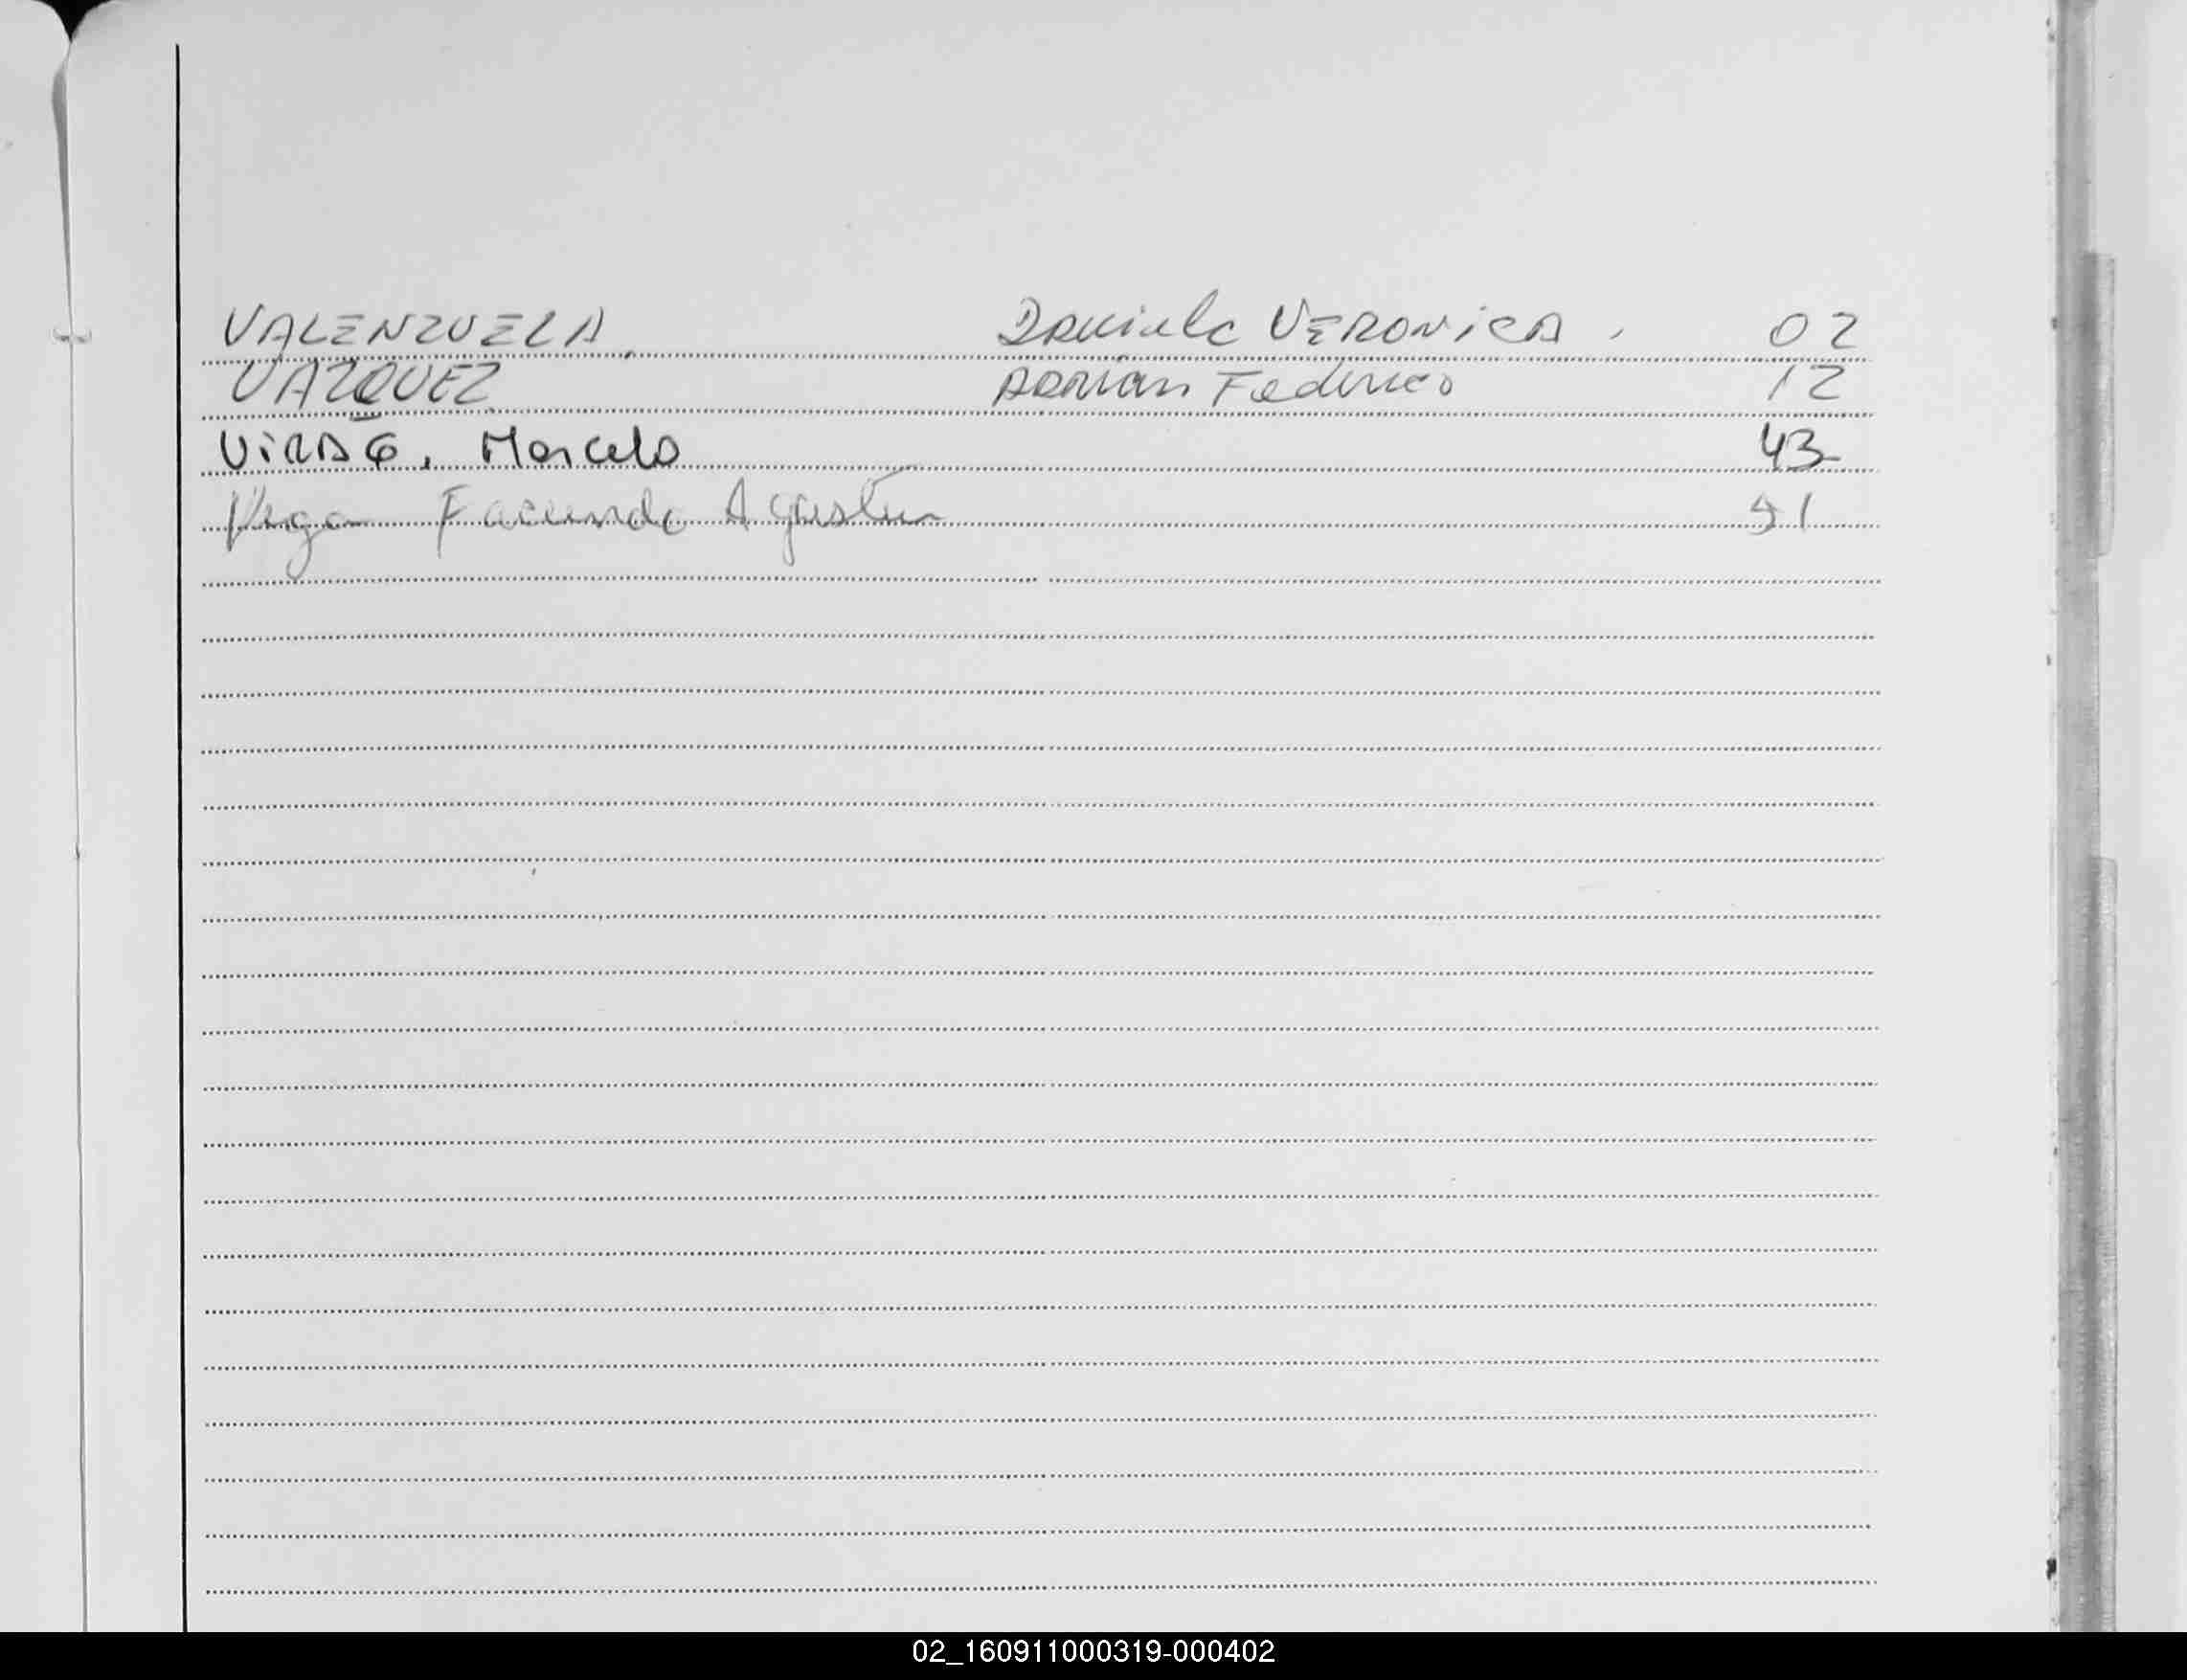 VALENZUELA. Daniela VERONICA. 02
VAZQUEZ Adrian Federico 12
ViRAG, Marcelo 43
Vega Facundo Agustin 91
02_160911000319-000402